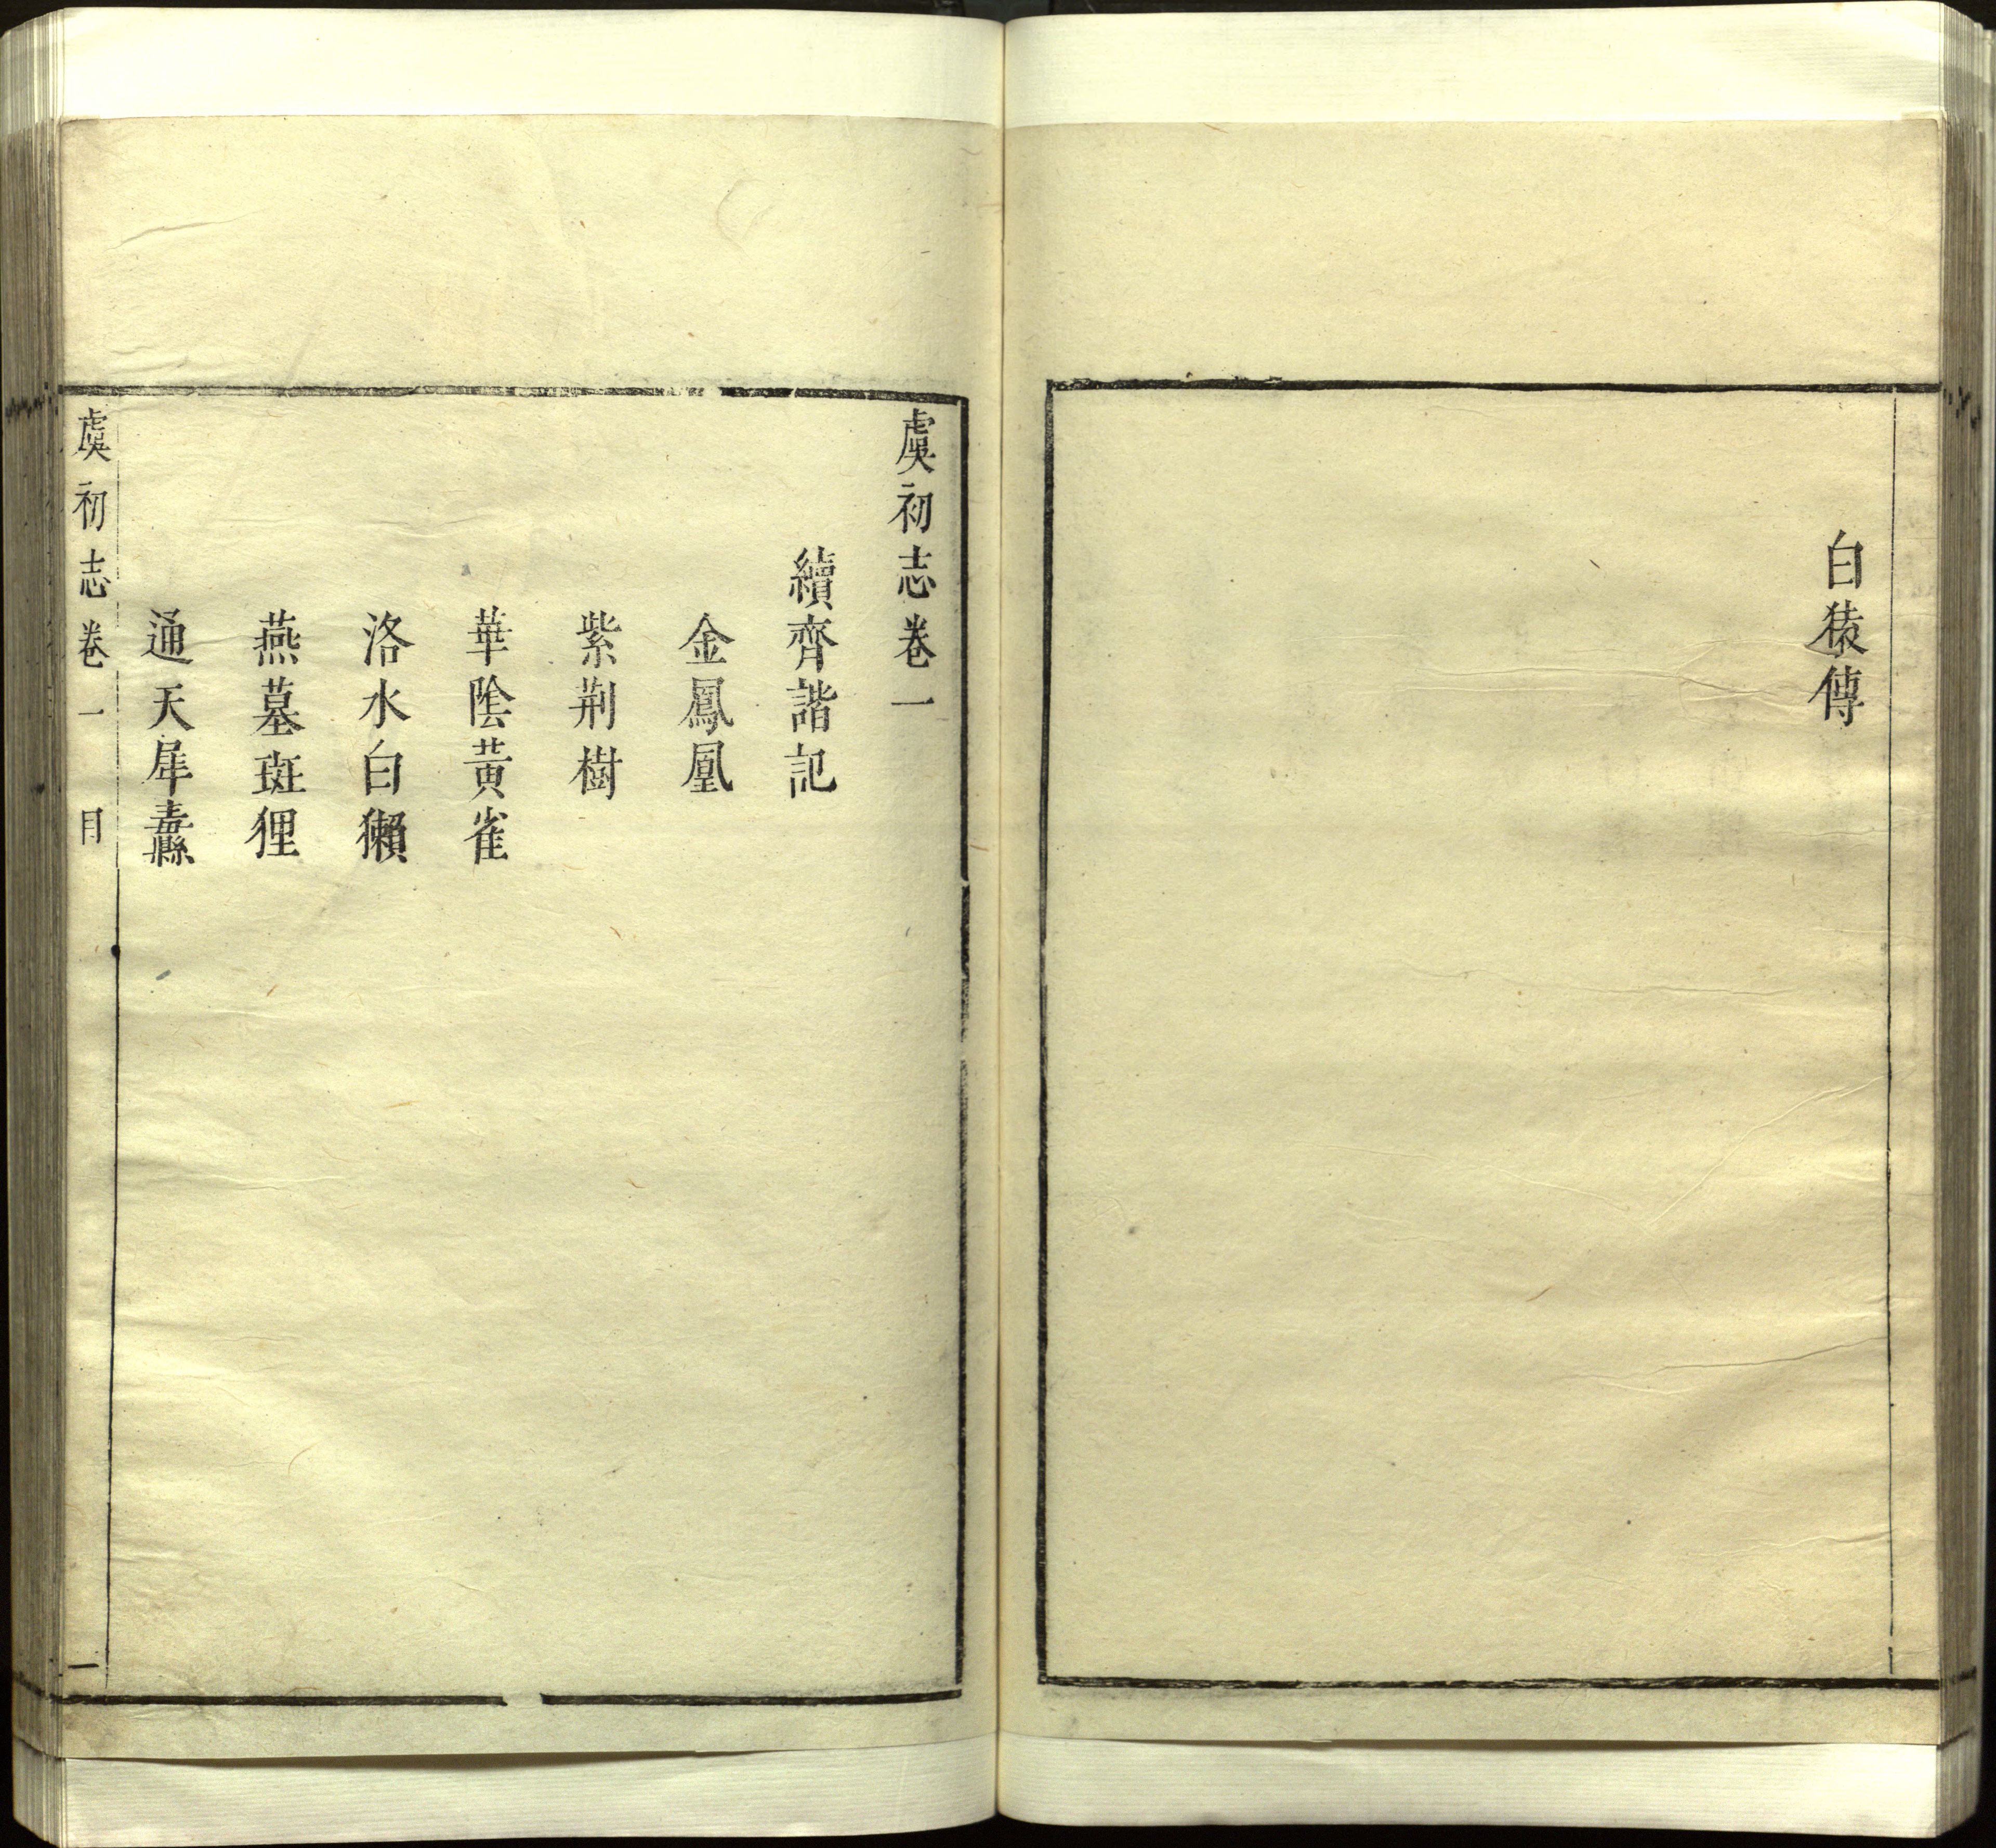 白猿傳
虞初志卷一
續齊諧記
金鳳凰
紫荆樹
華陰黃雀
洛水白獺
燕墓斑狸
通天犀纛
虞初志卷一 目 一